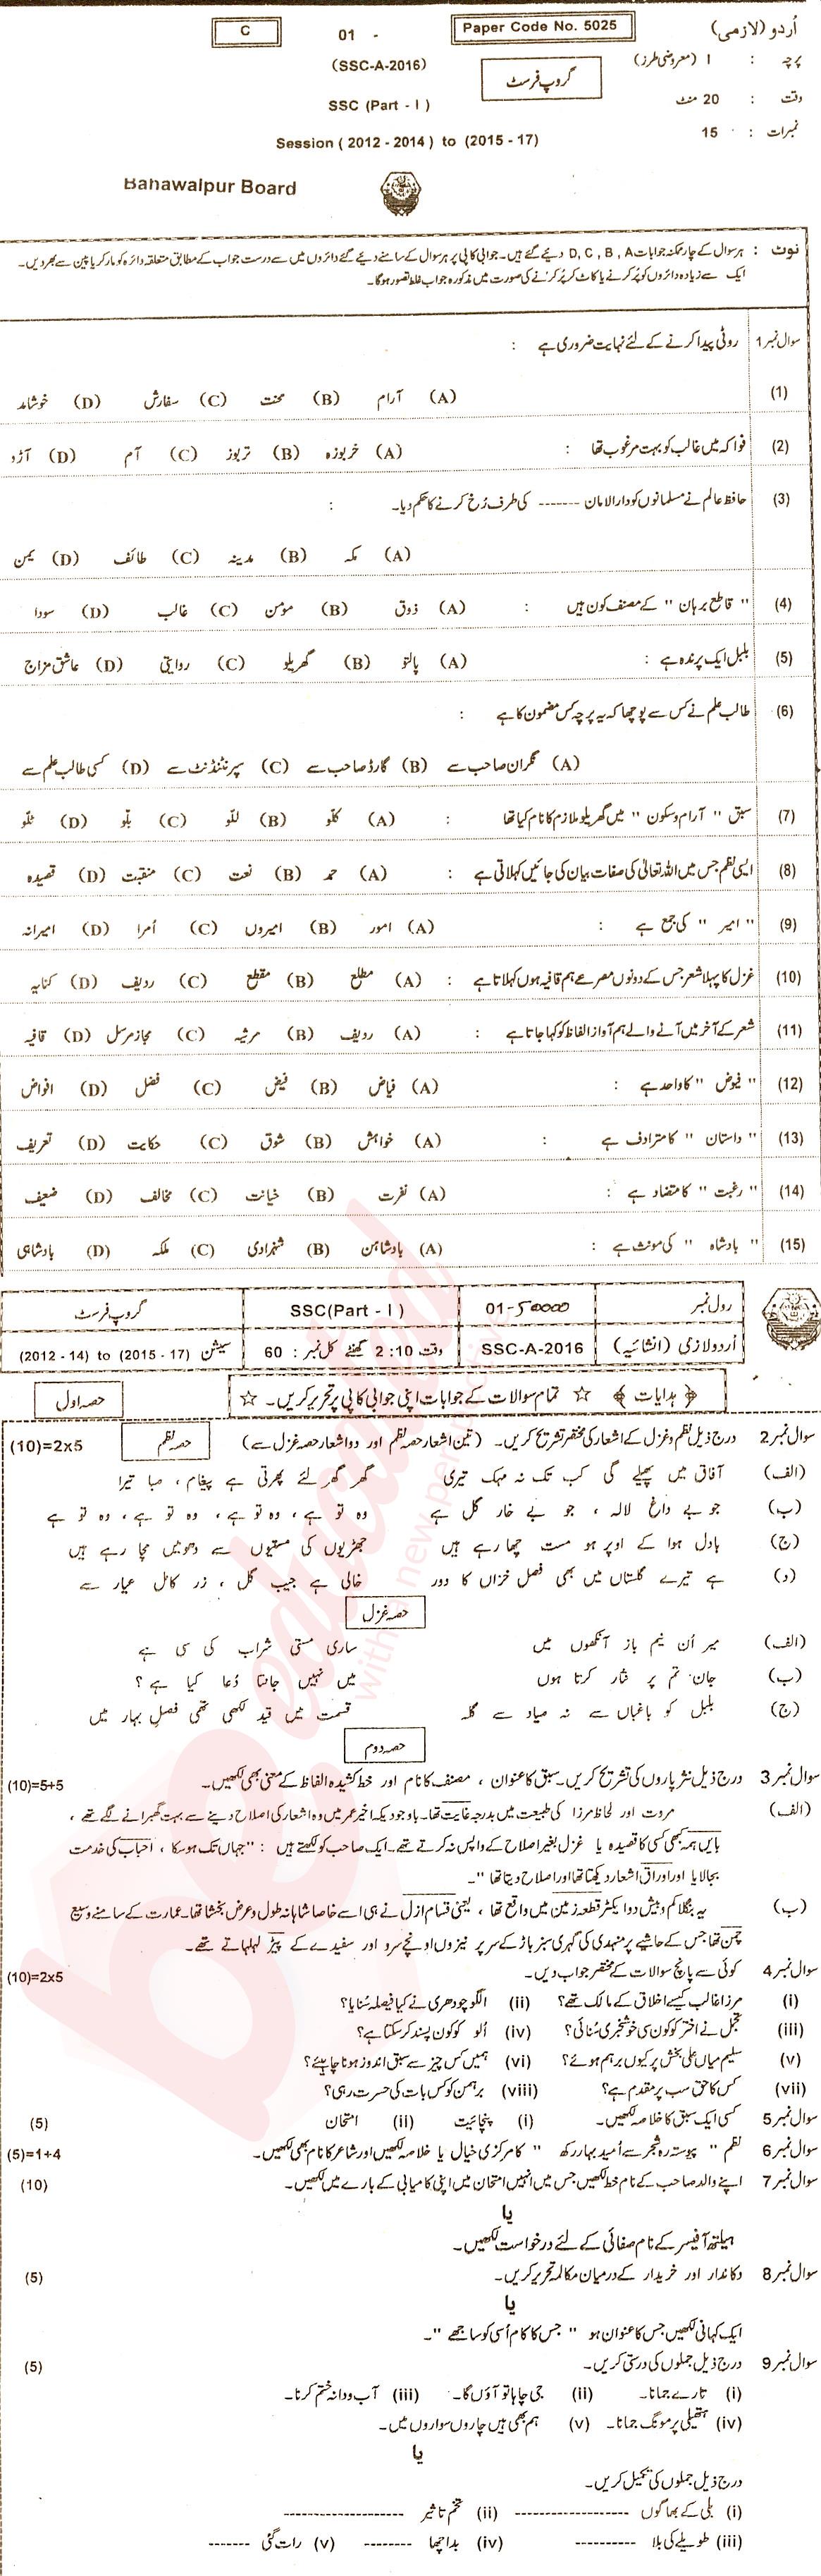 اُردو (لازمی) Paper Code No. 5025 - 01 C
پرچہ : I (معروضی طرز) گروپ فرسٹ (SSC-A-2016)
وقت : 20 منٹ SSC (Part - I)
نمبرات : 15 Session (2012 - 2014) to (2015 - 17)
Bahawalpur Board
نوٹ : ہر سوال کے چار ممکنہ جوابات D, C, B, A دیئے گئے ہیں۔ جوابی کاپی پر ہر سوال کے سامنے دیئے گئے دائروں میں سے درست جواب کے مطابق متعلقہ دائرہ کو مارکر یا پین سے بھر دیں۔
ایک سے زیادہ دائروں کو پُر کرنے یا کاٹ کر پُر کرنے کی صورت میں مذکورہ جواب غلط تصور ہوگا۔
سوال نمبر 1 روٹی پیدا کرنے کے لئے نہایت ضروری ہے :
(1) (A) آرام (B) محنت (C) سفارش (D) خوشامد
(2) فواکہ میں غالب کو بہت مرغوب تھا : (A) خربوزہ (B) تربوز (C) آم (D) آڑو
(3) حافظ عالم نے مسلمانوں کو دارالامان ------- کی طرف رُخ کرنے کا حکم دیا۔ :
(A) مکہ (B) مدینہ (C) طائف (D) یمن
(4) " قاطع برہان " کے مصنف کون ہیں : (A) ذوق (B) مومن (C) غالب (D) سودا
(5) بلبل ایک پرندہ ہے : (A) پالتو (B) گھریلو (C) روایتی (D) عاشق مزاج
(6) طالب علم نے کس سے پوچھا کہ یہ پرچہ کس مضمون کا ہے :
(A) نگران صاحب سے (B) گارڈ صاحب سے (C) سپرنٹنڈنٹ سے (D) کسی طالب علم سے
(7) سبق " آرام و سکون " میں گھریلو ملازم کا نام کیا تھا : (A) کلّو (B) للّو (C) بلّو (D) ٹلّو
(8) ایسی نظم جس میں اللہ تعالیٰ کی صفات بیان کی جائیں کہلاتی ہے : (A) حمد (B) نعت (C) منقبت (D) قصیدہ
(9) " امیر " کی جمع ہے : (A) امور (B) امیروں (C) اُمرا (D) امیرانہ
(10) غزل کا پہلا شعر جس کے دونوں مصرعے ہم قافیہ ہوں کہلاتا ہے : (A) مطلع (B) مقطع (C) ردیف (D) کنایہ
(11) شعر کے آخر میں آنے والے ہم آواز الفاظ کو کہا جاتا ہے : (A) ردیف (B) مرثیہ (C) مجاز مرسل (D) قافیہ
(12) " فیوض " کا واحد ہے : (A) فیاض (B) فیض (C) فضل (D) افواض
(13) " داستان " کا مترادف ہے : (A) خواہش (B) شوق (C) حکایت (D) تعریف
(14) " رغبت " کا متضاد ہے : (A) نفرت (B) خیانت (C) مخالف (D) ضعیف
(15) " بادشاہ " کی مونث ہے : (A) بادشاہن (B) شہزادی (C) ملکہ (D) بادشاہی
رول نمبر 01-50000 SSC(Part - I) گروپ فرسٹ
اُردو لازمی (انشائیہ) SSC-A-2016 وقت 2:10 گھنٹے کل نمبر : 60 سیشن (2012 - 14) to (2015 - 17)
﴿ ہدایات ﴾ ☆ تمام سوالات کے جوابات اپنی جوابی کاپی پر تحریر کریں۔ ☆ حصہ اول
سوال نمبر 2 درج ذیل نظم و غزل کے اشعار کی مختصر تشریح کریں۔ (تین اشعار حصہ نظم اور دو اشعار حصہ غزل سے) حصہ نظم (10)=2x5
(الف) آفاق میں پھیلے گی کب تک نہ مہک تیری گھر گھر لئے پھرتی ہے پیغام ، صبا تیرا
(ب) جو بے داغ لالہ ، جو بے خار گل ہے وہ تو ہے ، وہ تو ہے ، وہ تو ہے ، وہ تو ہے
(ج) بادل ہوا کے اوپر ہو مست چھا رہے ہیں جھڑیوں کی مستیوں سے دھومیں مچا رہے ہیں
(د) ہے تیرے گلستاں میں بھی فصل خزاں کا دور خالی ہے جیب گل ، زر کامل عیار سے
حصہ غزل
(الف) میر اُن نیم باز آنکھوں میں ساری مستی شراب کی سی ہے
(ب) جان تم پر نثار کرتا ہوں میں نہیں جانتا دُعا کیا ہے ؟
(ج) بلبل کو باغباں سے نہ صیاد سے گلہ قسمت میں قید لکھی تھی فصلِ بہار میں
حصہ دوم
سوال نمبر 3 درج ذیل نثر پاروں کی تشریح کریں۔ سبق کا عنوان ، مصنف کا نام اور خط کشیدہ الفاظ کے معنی بھی لکھیں۔ (10)=5+5
(الف) مروت اور لحاظ مرزا کی طبیعت میں بدرجہ غایت تھا۔ باوجودیکہ اخیر عمر میں وہ اشعار کی اصلاح دینے سے بہت گھبرانے لگے تھے ،
بایں ہمہ کبھی کسی کا قصیدہ یا غزل بغیر اصلاح کے واپس نہ کرتے تھے۔ ایک صاحب کو لکھتے ہیں : "جہاں تک ہوسکا ، احباب کی خدمت
بجا لایا اور اوراق اشعار دیکھتا تھا اور اصلاح دیتا تھا "۔
(ب) یہ بنگلا کم و بیش دو ایکڑ قطعہ زمین میں واقع تھا ، یعنی قسام ازل نے ہی اسے خاصا شاہانہ طول و عرض بخشا تھا۔ عمارت کے سامنے وسیع
چمن تھا جس کے حاشیے پر منہدی کی گہری سبز باڑ کے سر پر نیزوں اونچے سرو اور سفیدے کے پیڑ لہلہاتے تھے۔
سوال نمبر 4 کوئی سے پانچ سوالات کے مختصر جواب دیں۔ (10)=2x5
(i) مرزا غالب کیسے اخلاق کے مالک تھے؟ (ii) الگو چودھری نے کیا فیصلہ سُنایا؟
(iii) تجمل نے اختر کو کون سی خوشخبری سُنائی؟ (iv) اُلو کو کون پسند کرسکتا ہے؟
(v) سلیم میاں علی بخش پر کیوں برہم ہوئے؟ (vi) ہمیں کس چیز سے سبق اندوز ہونا چاہیئے؟
(vii) کس کا حق سب پر مقدم ہے؟ (viii) برہمن کو کس بات کی حسرت رہی؟
سوال نمبر 5 کسی ایک سبق کا خلاصہ لکھیں۔ (i) پنچائیت (ii) امتحان (5)
سوال نمبر 6 نظم " پیوستہ رہ شجر سے اُمید بہار رکھ " کا مرکزی خیال یا خلاصہ لکھیں اور شاعر کا نام بھی لکھیں۔ (5)=1+4
سوال نمبر 7 اپنے والد صاحب کے نام خط لکھیں جس میں انہیں امتحان میں اپنی کامیابی کے بارے میں لکھیں۔ (10)
یا
ہیلتھ آفیسر کے نام صفائی کے لئے درخواست لکھیں۔
سوال نمبر 8 دکاندار اور خریدار کے درمیان مکالمہ تحریر کریں۔ (5)
یا
ایک کہانی لکھیں جس کا عنوان ہو " جس کا کام اُسی کو ساجھے "۔
سوال نمبر 9 درج ذیل جملوں کی درستی کریں۔ (5)
(i) تارے جمانا۔ (ii) جی چاہا تو آؤں گا۔ (iii) آب و دانہ ختم کرنا۔
(iv) ہتھیلی پر مونگ جمانا۔ (v) ہم بھی ہیں چاروں سواروں میں۔
یا
درج ذیل جملوں کی تکمیل کریں۔
(i) بلی کے بھاگوں ------------------- (ii) تخم تاثیر --------------------
(iii) طویلے کی بلا ---------- (iv) بد اچھا -------- (v) رات گئی -------